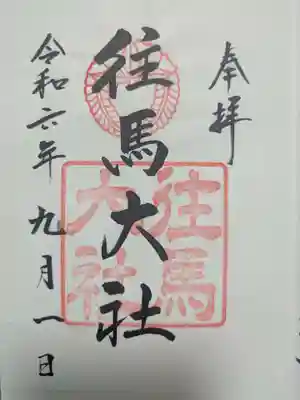 奉拝
往馬大社
往馬
大社
令和六年 九月一日